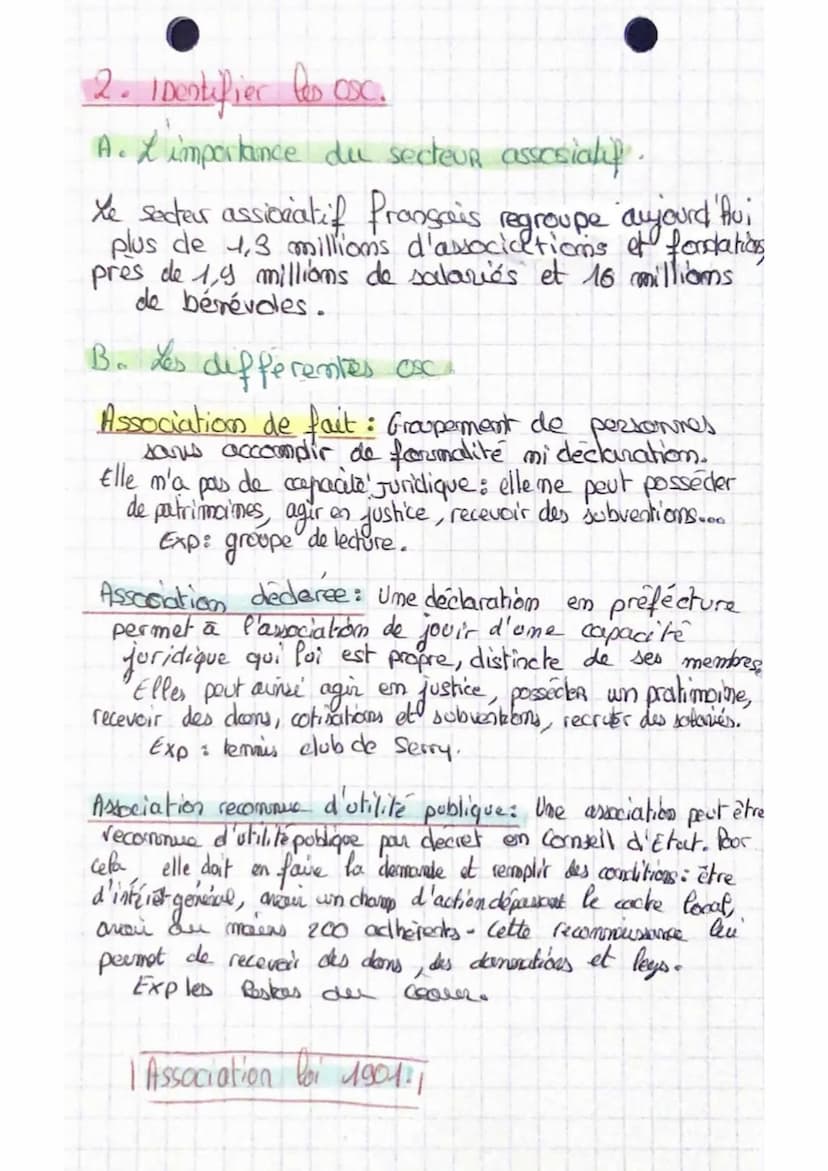 2. IDentifier les OSC.
A. L'importance du secteur assosiatif.
Le secteur associatif français regroupe aujourd'hui
plus de 1,3 millions d'associations et fondations
près de 1,9 millions de salariés et 16 millions
de bénévoles.
B. Les différentes OSC
Association de fait : Groupement de personnes
sans accomplir de formalité ni déclaration.
Elle n'a pas de capacité juridique : elle ne peut posséder
de patrimoines, agir en justice, recevoir des subventions...
Exp : groupe de lecture.
Association déclarée : Une déclaration en préfécture
permet à l'association de jouir d'une capacité
juridique qui lui est propre, distincte de ses membres
Elles peut ainsi agir en justice, posséder un pratimoine,
recevoir des dons, cotisations et subventions, recruter des salariés.
Exp : tennis club de Serry.
Association reconnue d'utilité publique : Une association peut être
reconnue d'utilité publique par décret en Conseil d'Etat. Pour
cela, elle doit en faire la demande et remplir des conditions : être
d'intérêt général, avoir un champ d'action dépassant le cadre local,
avoir au moins 200 adhérents - Cette reconnaissance lui
permet de recevoir des dons, des donnations et legs.
Exp les Restos du coeur.
Association loi 1901.